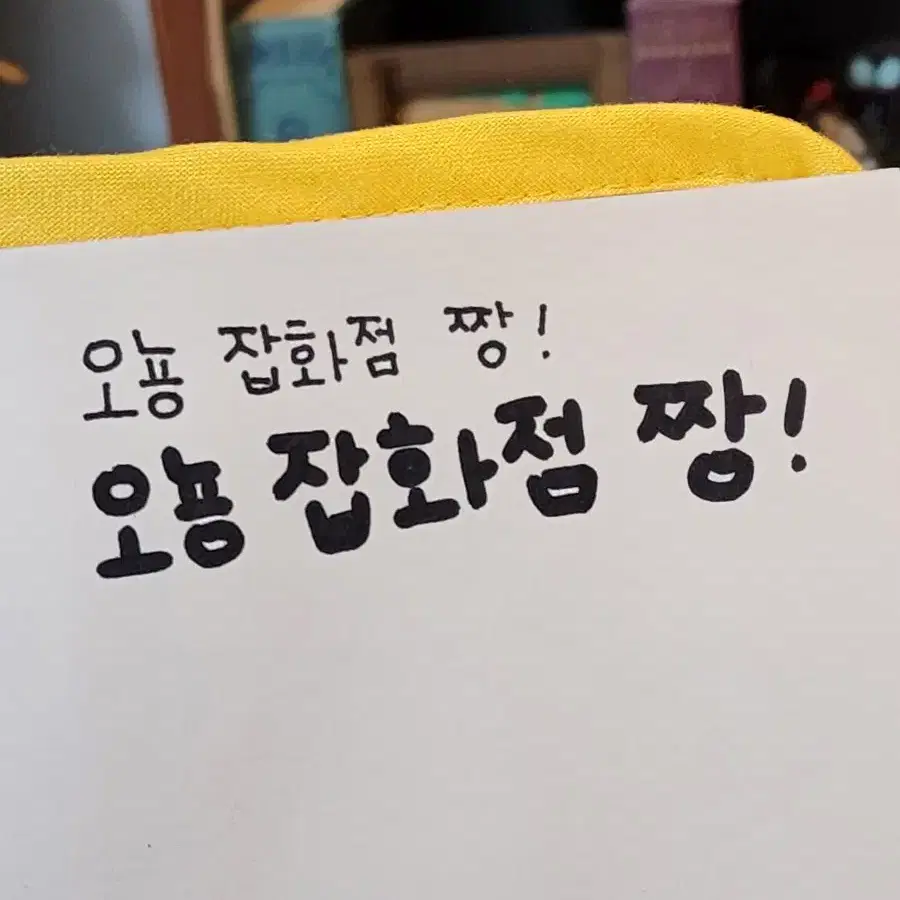 오뇽 잡화점 짱!
오뇽 잡화점 짱!